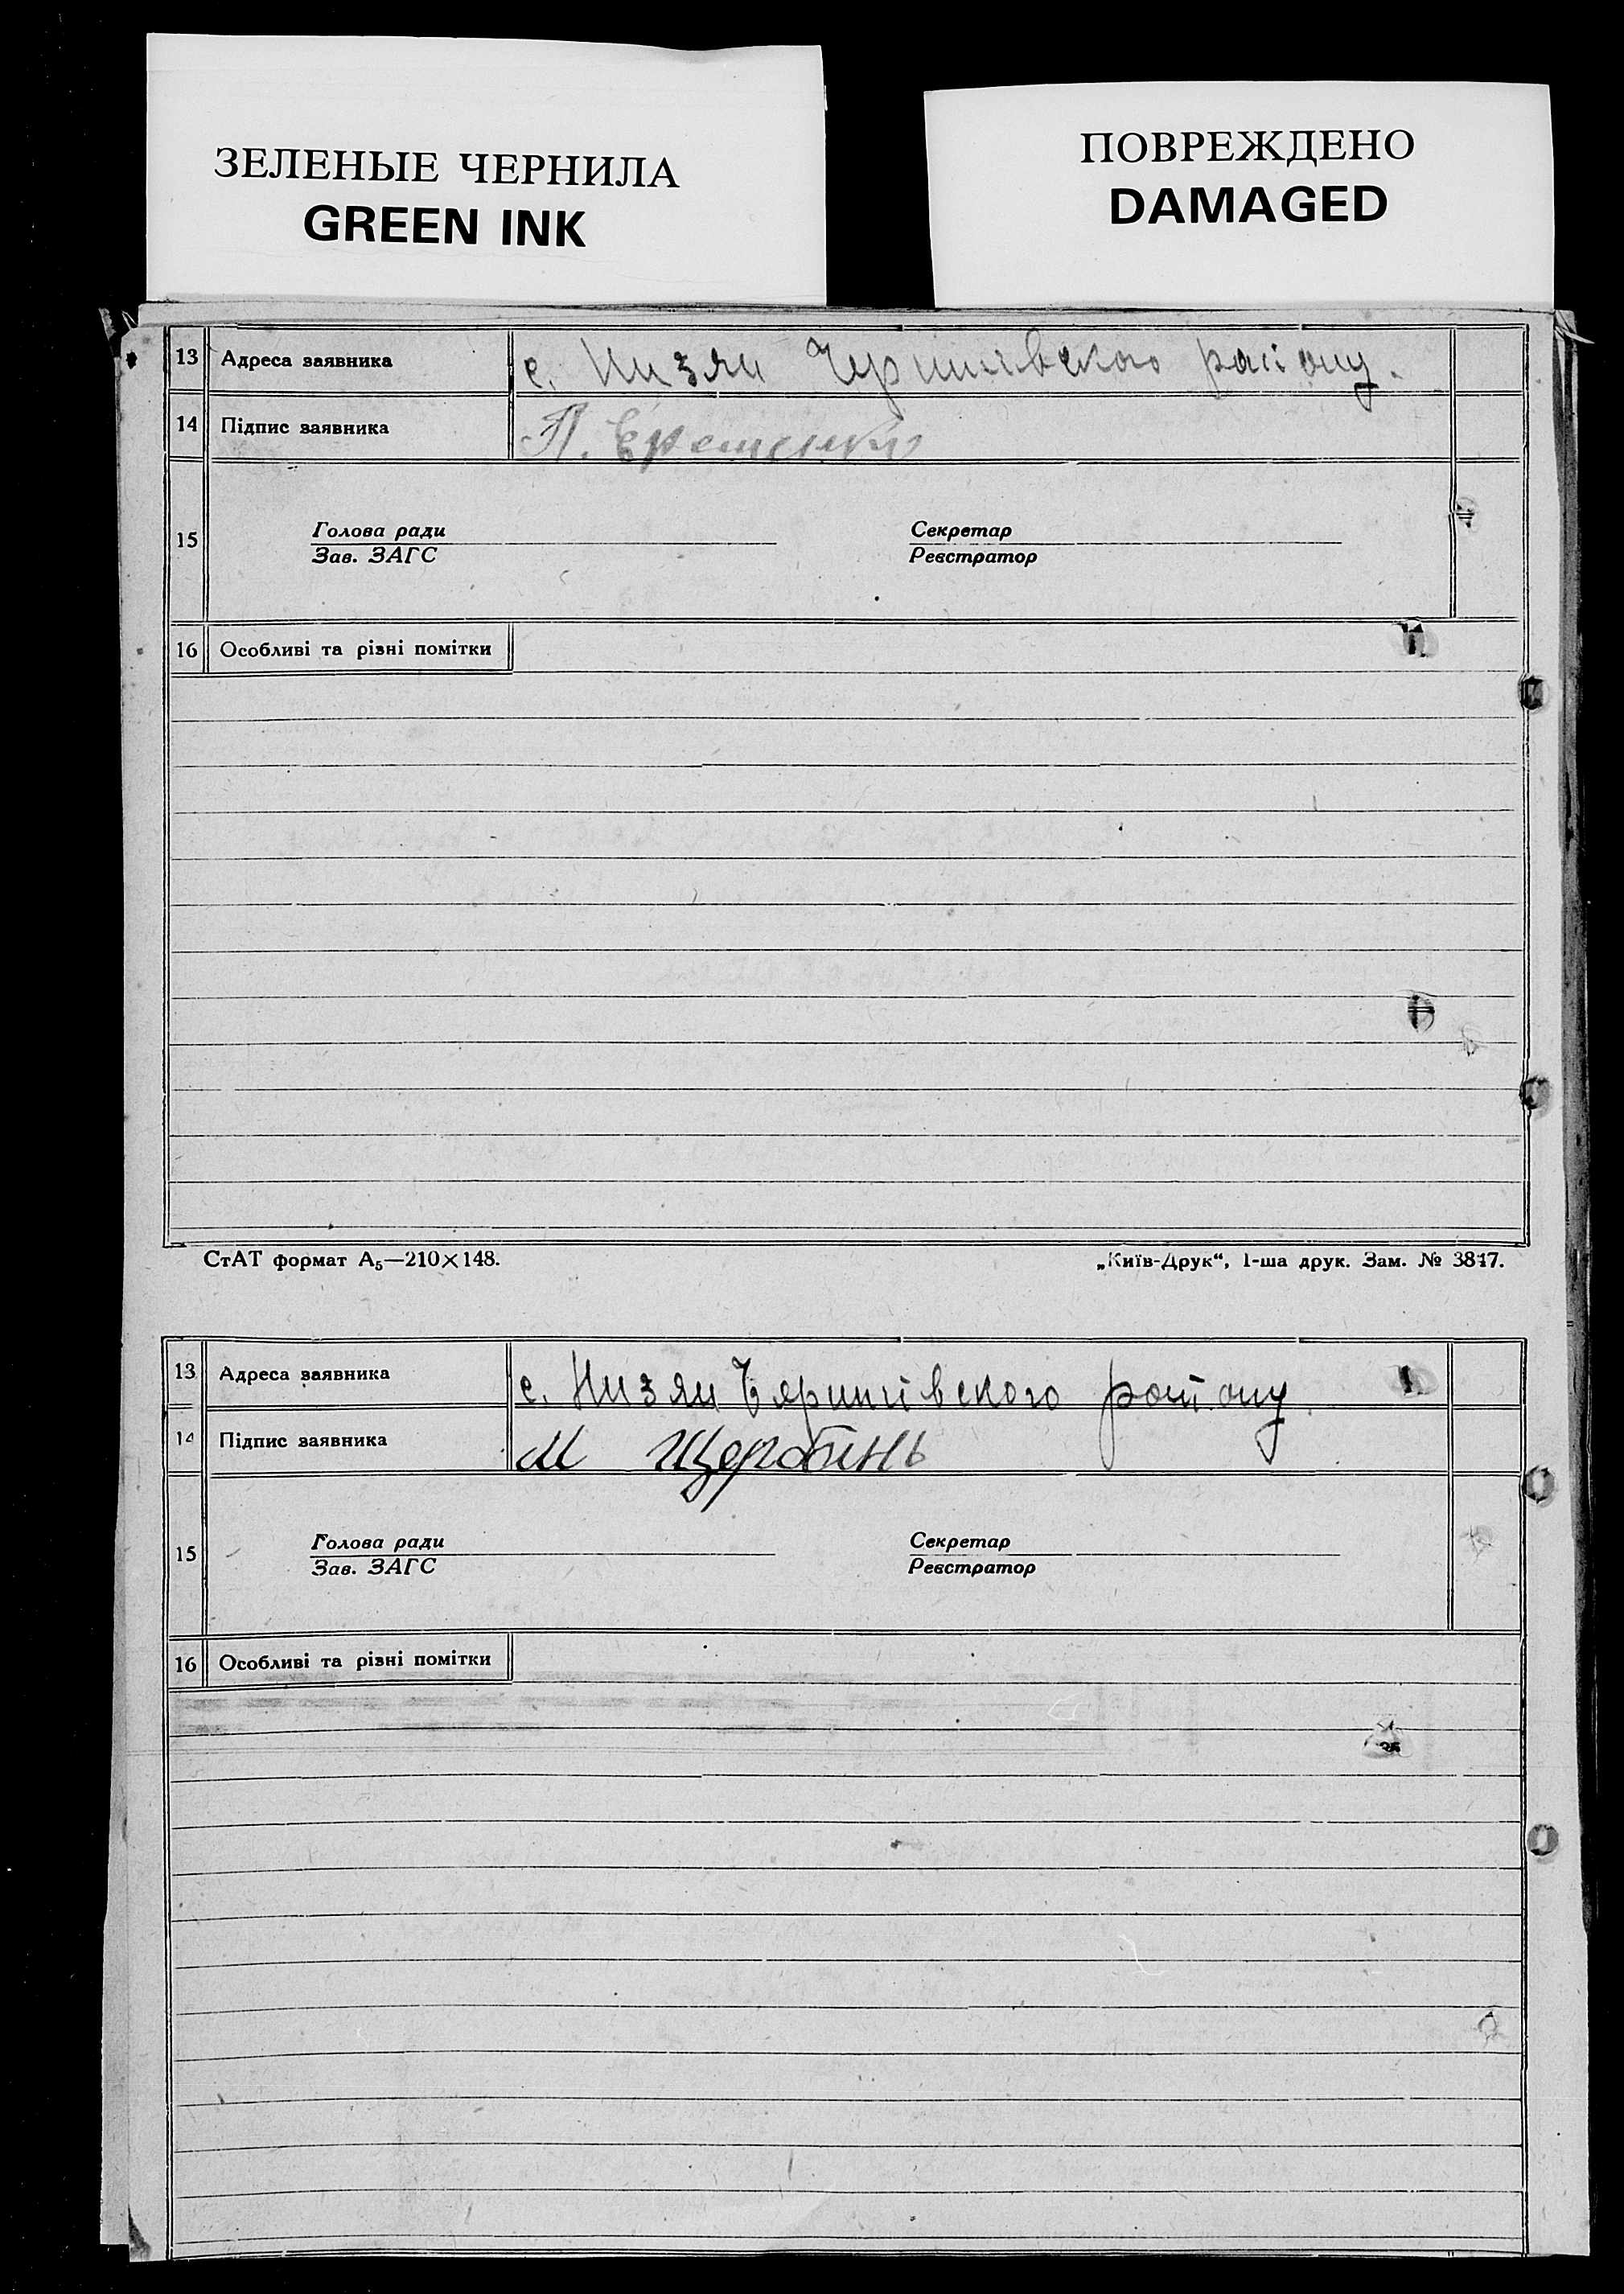 ЗЕЛЕНЫЕ ЧЕРНИЛА
GREEN INK
ПОВРЕЖДЕНО
DAMAGED
13 Адреса заявника с. Низяни району.
14 Підпис заявника П. Єременко
15 Голова ради Секретар
Зав. ЗАГС Реєстратор
16 Особливі та різні помітки
СтАТ формат А₅—210×148. „Київ-Друк“, 1-ша друк. Зам. № 3847.
13 Адреса заявника с. Низяни району
14 Підпис заявника М Щербань
15 Голова ради Секретар
Зав. ЗАГС Реєстратор
16 Особливі та різні помітки